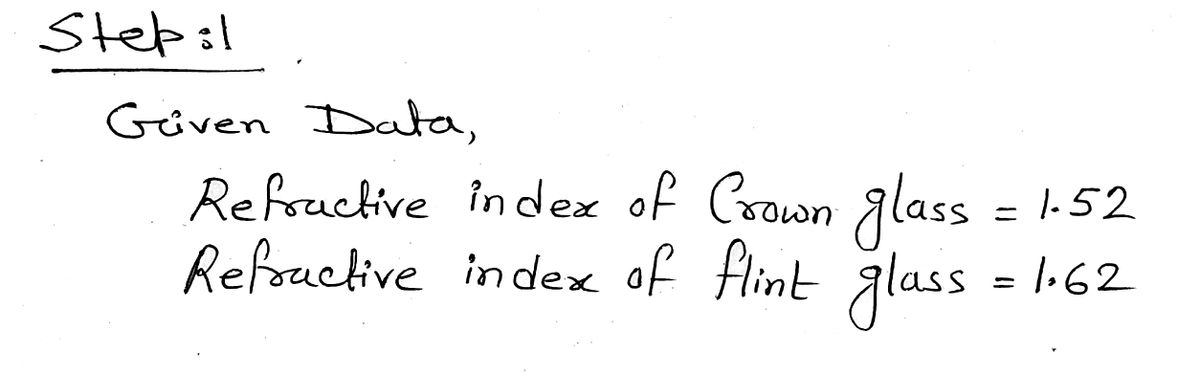 Step:1
Given Data,
Refractive index of Crown glass = 1.52
Refractive index of flint glass = 1.62